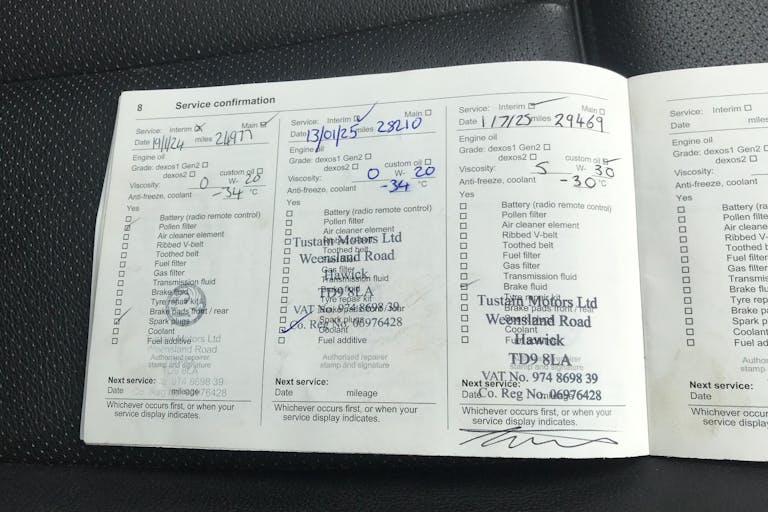 8 Service confirmation
Service: Interim Main
Date 19/1/24 miles 24977
Engine oil
Grade: dexos1 Gen2
dexos2 custom oil
Viscosity: 0 W- 20
Anti-freeze, coolant -34 °C
Yes
Battery (radio remote control)
Pollen filter
Air cleaner element
Ribbed V-belt
Toothed belt
Fuel filter
Gas filter
Transmission fluid
Brake fluid
Tyre repair kit
Brake pads front / rear
Spark plugs
Coolant
Fuel additive
Motors Ltd
Weensland Road
Authorised repairer
stamp and signature
TD9 8LA
974 8698 39
Next service:
Date mileage
06976428
Whichever occurs first, or when your
service display indicates.
Service: Interim Main
Date 13/01/25 miles 28210
Engine oil
Grade: dexos1 Gen2
dexos2 custom oil
Viscosity: 0 W- 20
Anti-freeze, coolant -34 °C
Yes
Battery (radio remote control)
Pollen filter
Air cleaner element
Tustain Motors Ltd
Toothed belt
Weensland Road
Gas filter
Hawick
Transmission fluid
TD9 8LA
Tyre repair kit
VAT No. 974 8698 39
Spark plugs
Co. Reg No. 06976428
Coolant
Fuel additive
Authorised repairer
stamp and signature
Next service:
Date mileage
Whichever occurs first, or when your
service display indicates.
Service: Interim Main
Date 1/7/25 miles 29469
Engine oil
Grade: dexos1 Gen2
dexos2 custom oil
Viscosity: 5 W- 30
Anti-freeze, coolant -30 °C
Yes
Battery (radio remote control)
Pollen filter
Air cleaner element
Ribbed V-belt
Toothed belt
Fuel filter
Gas filter
Transmission fluid
Brake fluid
Tyre repair kit
Tustain Motors Ltd
Brake pads front / rear
Weensland Road
Coolant
Hawick
TD9 8LA
stamp and signature
VAT No. 974 8698 39
Next service:
Date
Co. Reg No. 06976428
Whichever occurs first, or when your
service display indicates.
Service: Interim
Date miles
Engine oil
Grade: dexos1 Gen2
dexos2
Viscosity:
Anti-freeze, coolant
Yes
Battery (ra
Pollen filte
Air cleane
Ribbed V-
Toothed b
Fuel filter
Gas filter
Transmiss
Brake flu
Tyre rep
Brake p
Spark p
Coolant
Fuel ad
Autho
stamp
Next service:
Date
Whichever occu
service display